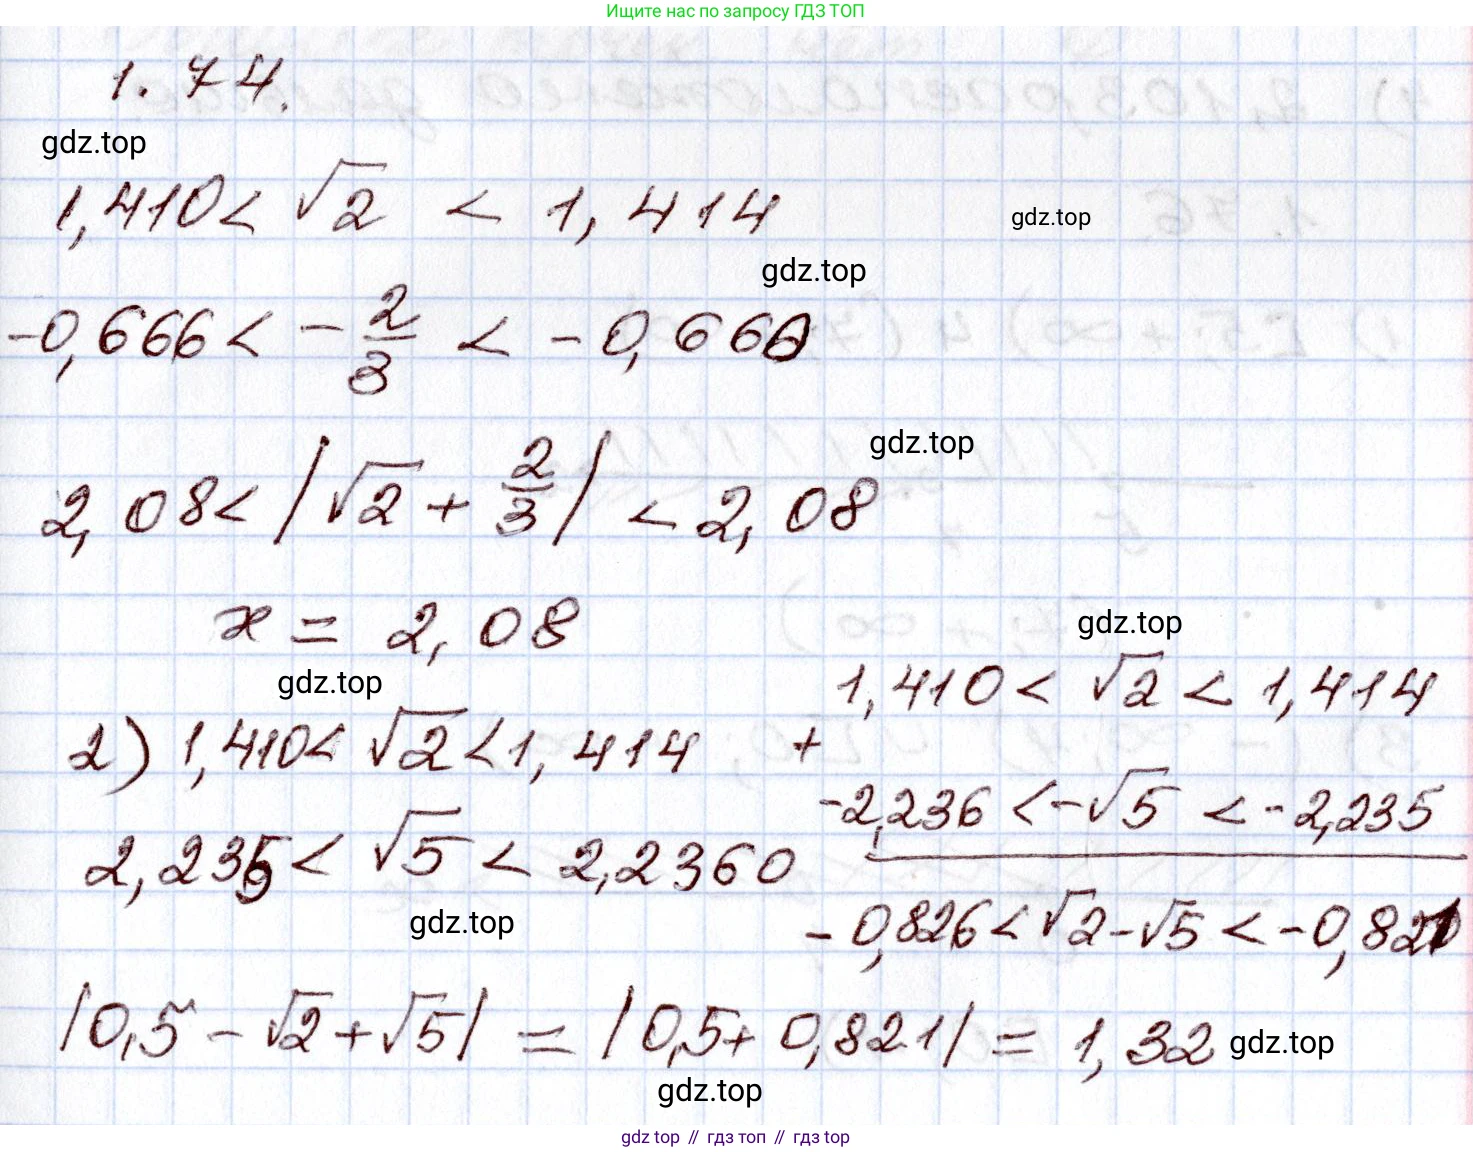 Ищите нас по запросу ГДЗ ТОП
1.74.
gdz.top
1,410 < √2 < 1,414
gdz.top
gdz.top
-0,666 < -2/3 < -0,660
gdz.top
2,08 < |√2 + 2/3| < 2,08
x = 2,08
gdz.top
gdz.top
2) 1,410 < √2 < 1,414
2,235 < √5 < 2,2360
gdz.top
1,410 < √2 < 1,414
+
-2,236 < -√5 < -2,235
-0,826 < √2 - √5 < -0,821
|0,5 - √2 + √5| = |0,5 + 0,821| = 1,32
gdz.top
gdz.top
gdz top // гдз топ // гдз top